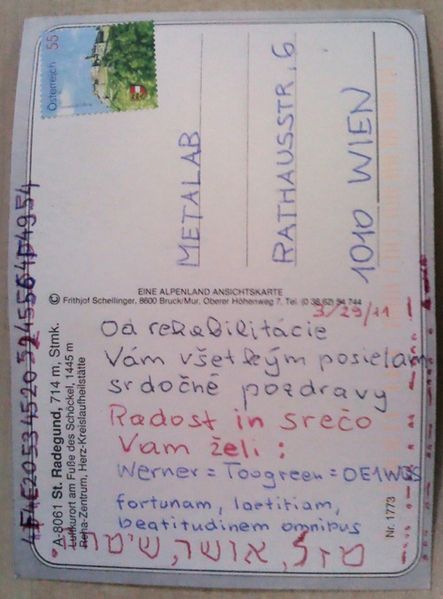 Österreich 55
METALAB
RATHAUSSTR. 6
1010 WIEN
EINE ALPENLAND ANSICHTSKARTE
© Frithjof Scheillinger, 8600 Bruck/Mur, Oberer Höhenweg 7, Tel. (0 38 62)
3/29/11
Od rehabilitácie
Vám všetkým posielam
srdočné pozdravy
Radost in srečo
Vam želi:
Werner = Toogreen =
fortunam, laetitiam,
beatitudinem omnibus
מזל, אושר,
4F4E205345205245564F4954
A-8061 St. Radegund, 714 m, Stmk.
Luftkurort am Fuße des Schöckel, 1445 m
Reha-Zentrum, Herz-Kreislaufheilstätte
Nr. 1773